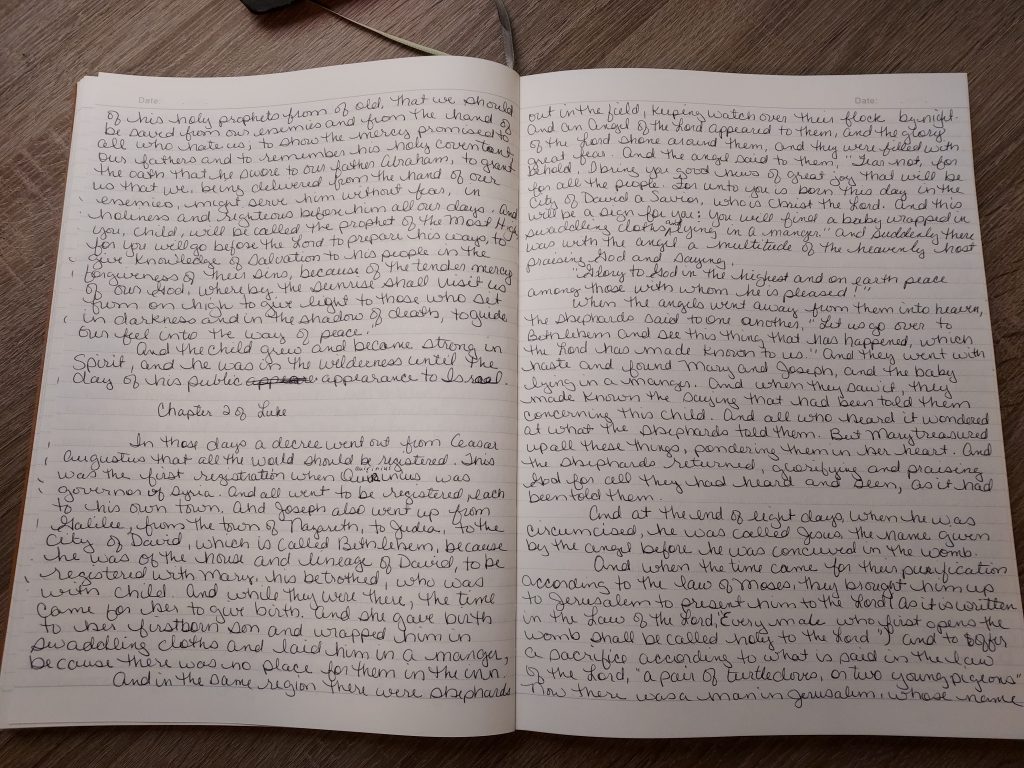 Date:
of his holy prophets from of old, that we should
be saved from our enemies and from the hand of
all who hate us, to show the mercy promised to
our fathers and to remember his holy covenant,
the oath that he swore to our father Abraham, to grant
us that we, being delivered from the hand of our
enemies, might serve him without fear, in
holiness and righteous before him all our days. And
you, child, will be called the prophet of the Most High
for you will go before the Lord to prepare his ways, to
give knowledge of Salvation to his people in the
forgiveness of their sins, because of the tender mercy
of our God, whereby the sunrise shall visit us
from on high to give light to those who set
in darkness and in the shadow of death, to guide
our feet into the way of peace.
And the child grew and became strong in
Spirit, and he was in the wilderness until the
day of his public appearance to Israel.
Chapter 2 of Luke
In those days a decree went out from Ceasar
Augustus that all the world should be registered. This
was the first registration when Quirinius was
governor of Syria. And all went to be registered, each
to his own town. And Joseph also went up from
Galilee, from the town of Nazareth, to Judia, to the
City of David, which is called Bethlehem, because
he was of the house and lineage of David, to be
registered with Mary, his betrothed, who was
with child. And while they were there, the time
came for her to give birth. And she gave birth
to her firstborn son and wrapped him in
swaddling cloths and laid him in a manger,
because there was no place for them in the inn.
And in the same region there were shephards
Date:
out in the field, keeping watch over their flock by night.
And an Angel of the Lord appeared to them, and the glory
of the Lord shone around them, and they were filled with
great fear. And the angel said to them, "Fear not, for
behold, I bring you good news of great joy that will be
for all the people. For unto you is born this day in the
City of David a Savior, who is Christ the Lord. And this
will be a sign for you: you will find a baby wrapped in
swaddling cloths and lying in a manger." And suddenly there
was with the angel a multitude of the heavenly host
praising God and saying,
"Glory to God in the highest and on earth peace
among those with whom he is pleased!"
When the angels went away from them into heaven,
the shephards said to one another, "Let us go over to
Bethlehem and see this thing that has happened, which
the Lord has made known to us." And they went with
haste and found Mary and Joseph, and the baby
lying in a manger. And when they saw it, they
made known the saying that had been told them
concerning this child. And all who heard it wondered
at what the shephards told them. But Mary treasured
up all these things, pondering them in her heart. And
the shephards returned, glorifying and praising
God for all they had heard and seen, as it had
been told them.
And at the end of eight days when he was
circumcised, he was called Jesus the name given
by the angel before he was concieved in the womb.
And when the time came for their purification
according to the law of Moses, they brought him up
to Jerusalem to present him to the Lord (As it is written
in the Law of the Lord, "Every male who first opens the
womb shall be called holy to the Lord") and to offer
a sacrifice according to what is said in the law
of the Lord, "a pair of turtledoves, or two young pigeons"
Now there was a man in Jerusalem, whose name